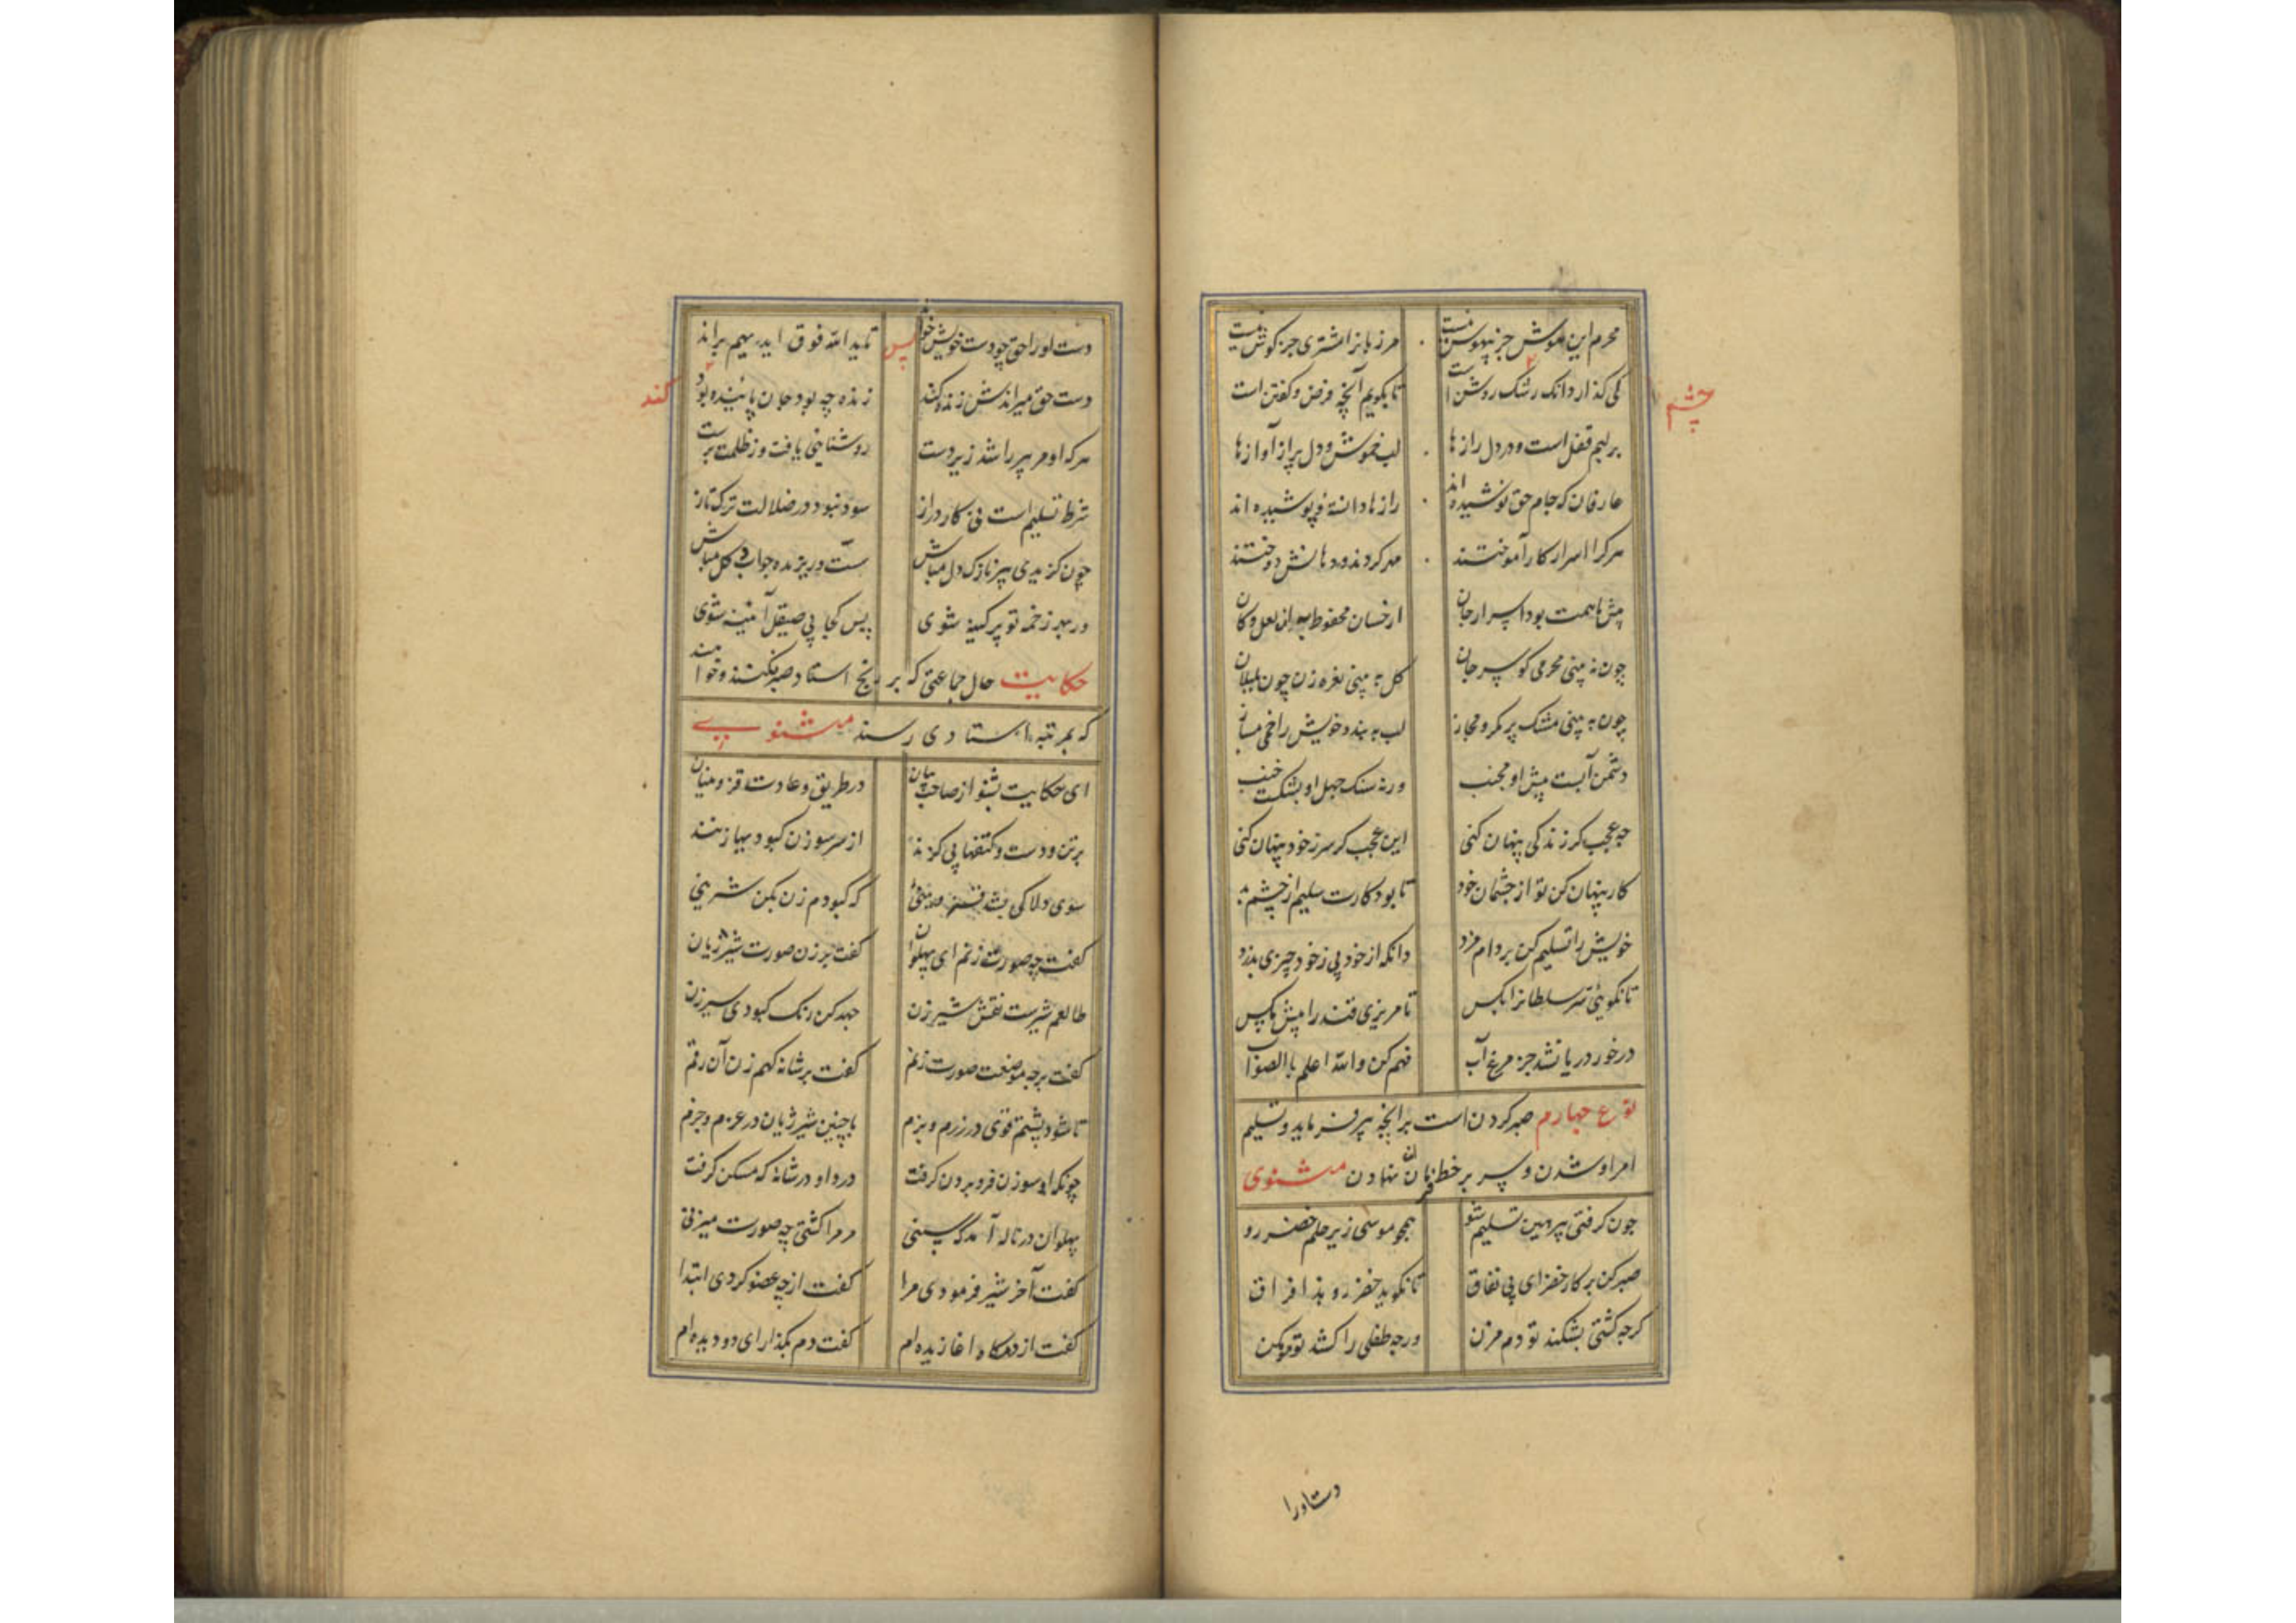 محرم این هوش جز بیهوش نیست مر زبانرا مشتری جز کوش نیست
کی کذارد انک رشک روشن است تا بکویم آنچه فرض و کفتن است
چشم
بر لبم قفل است و در دل رازها لب خموش و دل پر از آوازها
عارفان که جام حق نوشیده اند رازها دانسته و پوشیده اند
هر کرا اسرار کار آموختند مهر کردند و دهانش دوختند
اسرار جان از خسان محفوظ لعل و کان
چون نه بینی محرمی کو سر جان کل به بینی نعره زن چون بلبلان
چون به بینی مشک پر مکر و مجاز لب به بند و خویش را خمی مساز
دشمن آبست پیش او مجنب ورنه سنک جهل او بشکست خنب
چه عجب کر ز ندکی پنهان کنی این عجب کر سر ز خود پنهان کنی
کار پنهان کن تو از چشمان خود تا بود کارت سلیم از چشم بد
خویش را تسلیم کن بر دام مزد وانکه از خود بی ز خود چیزی بدزد
تا نکوئی سر سلطانرا بکس تا نریزی قند را پیش مکس
در خور دریا نشد جز مرغ آب فهم کن والله اعلم بالصواب
نوع چهارم صبر کردن است بر آنچه پیر فرماید و تسلیم
امر او شدن و سر بر خط فرمان نهادن مثنوی
چون کرفتی پیر هین تسلیم شو همچو موسی زیر حکم خضر رو
صبر کن بر کار خضر ای بی نفاق تا نکوید خضر رو هذا فراق
کرچه کشتی بشکند تو دم مزن ورچه طفلی را کشد تو مو مکن
دست اورا
دست او را حق چو دست خویش خواند پس تا یدالله فوق ایدیهم براند
دست حق میراندش زنده کند زنده چه بود جان پاینده بود
کند
هر که او مر پیر را شد زیردست روشنایی یافت وز ظلمت برست
شرط تسلیم است نی کار دراز سود نبود در ضلالت ترک تاز
چون کزیدی پیر نازک دل مباش سست و ریزنده چو آب و کل مباش
ور بهر زخمه تو پر کینه شوی پس کجا بی صیقل آئینه شوی
حکایت حال جماعتی که بر رنج استاد صبر نکنند و خواهند
که بمرتبه استادی رسند مثنوی
ای حکایت بشنو از صاحب بیان در طریق و عادت قزوینیان
بر تن و دست و کتفها بی کزند از سر سوزن کبودیها زنند
سوی دلاکی بشد قزوینئی که کبودم زن بکن شرینی
کفت چه صورت زنم ای پهلوان کفت بر زن صورت شیر ژیان
طالعم شیرست نقش شیر زن جهد کن رنک کبودی سیر زن
کفت بر چه موضعت صورت زنم کفت بر شانه کهم زن آن رقم
تا شود پشتم قوی در رزم و بزم با چنین شیر ژیان در عزم و جزم
چونکه او سوزن فرو بردن کرفت درد او در شانه که مسکن کرفت
پهلوان در ناله آمد کای سنی مر مرا کشتی چه صورت میزنی
کفت آخر شیر فرمودی مرا کفت از چه عضو کردی ابتدا
کفت از دمکاه اغازیده ام کفت دم بکذار ای دو دیده ام